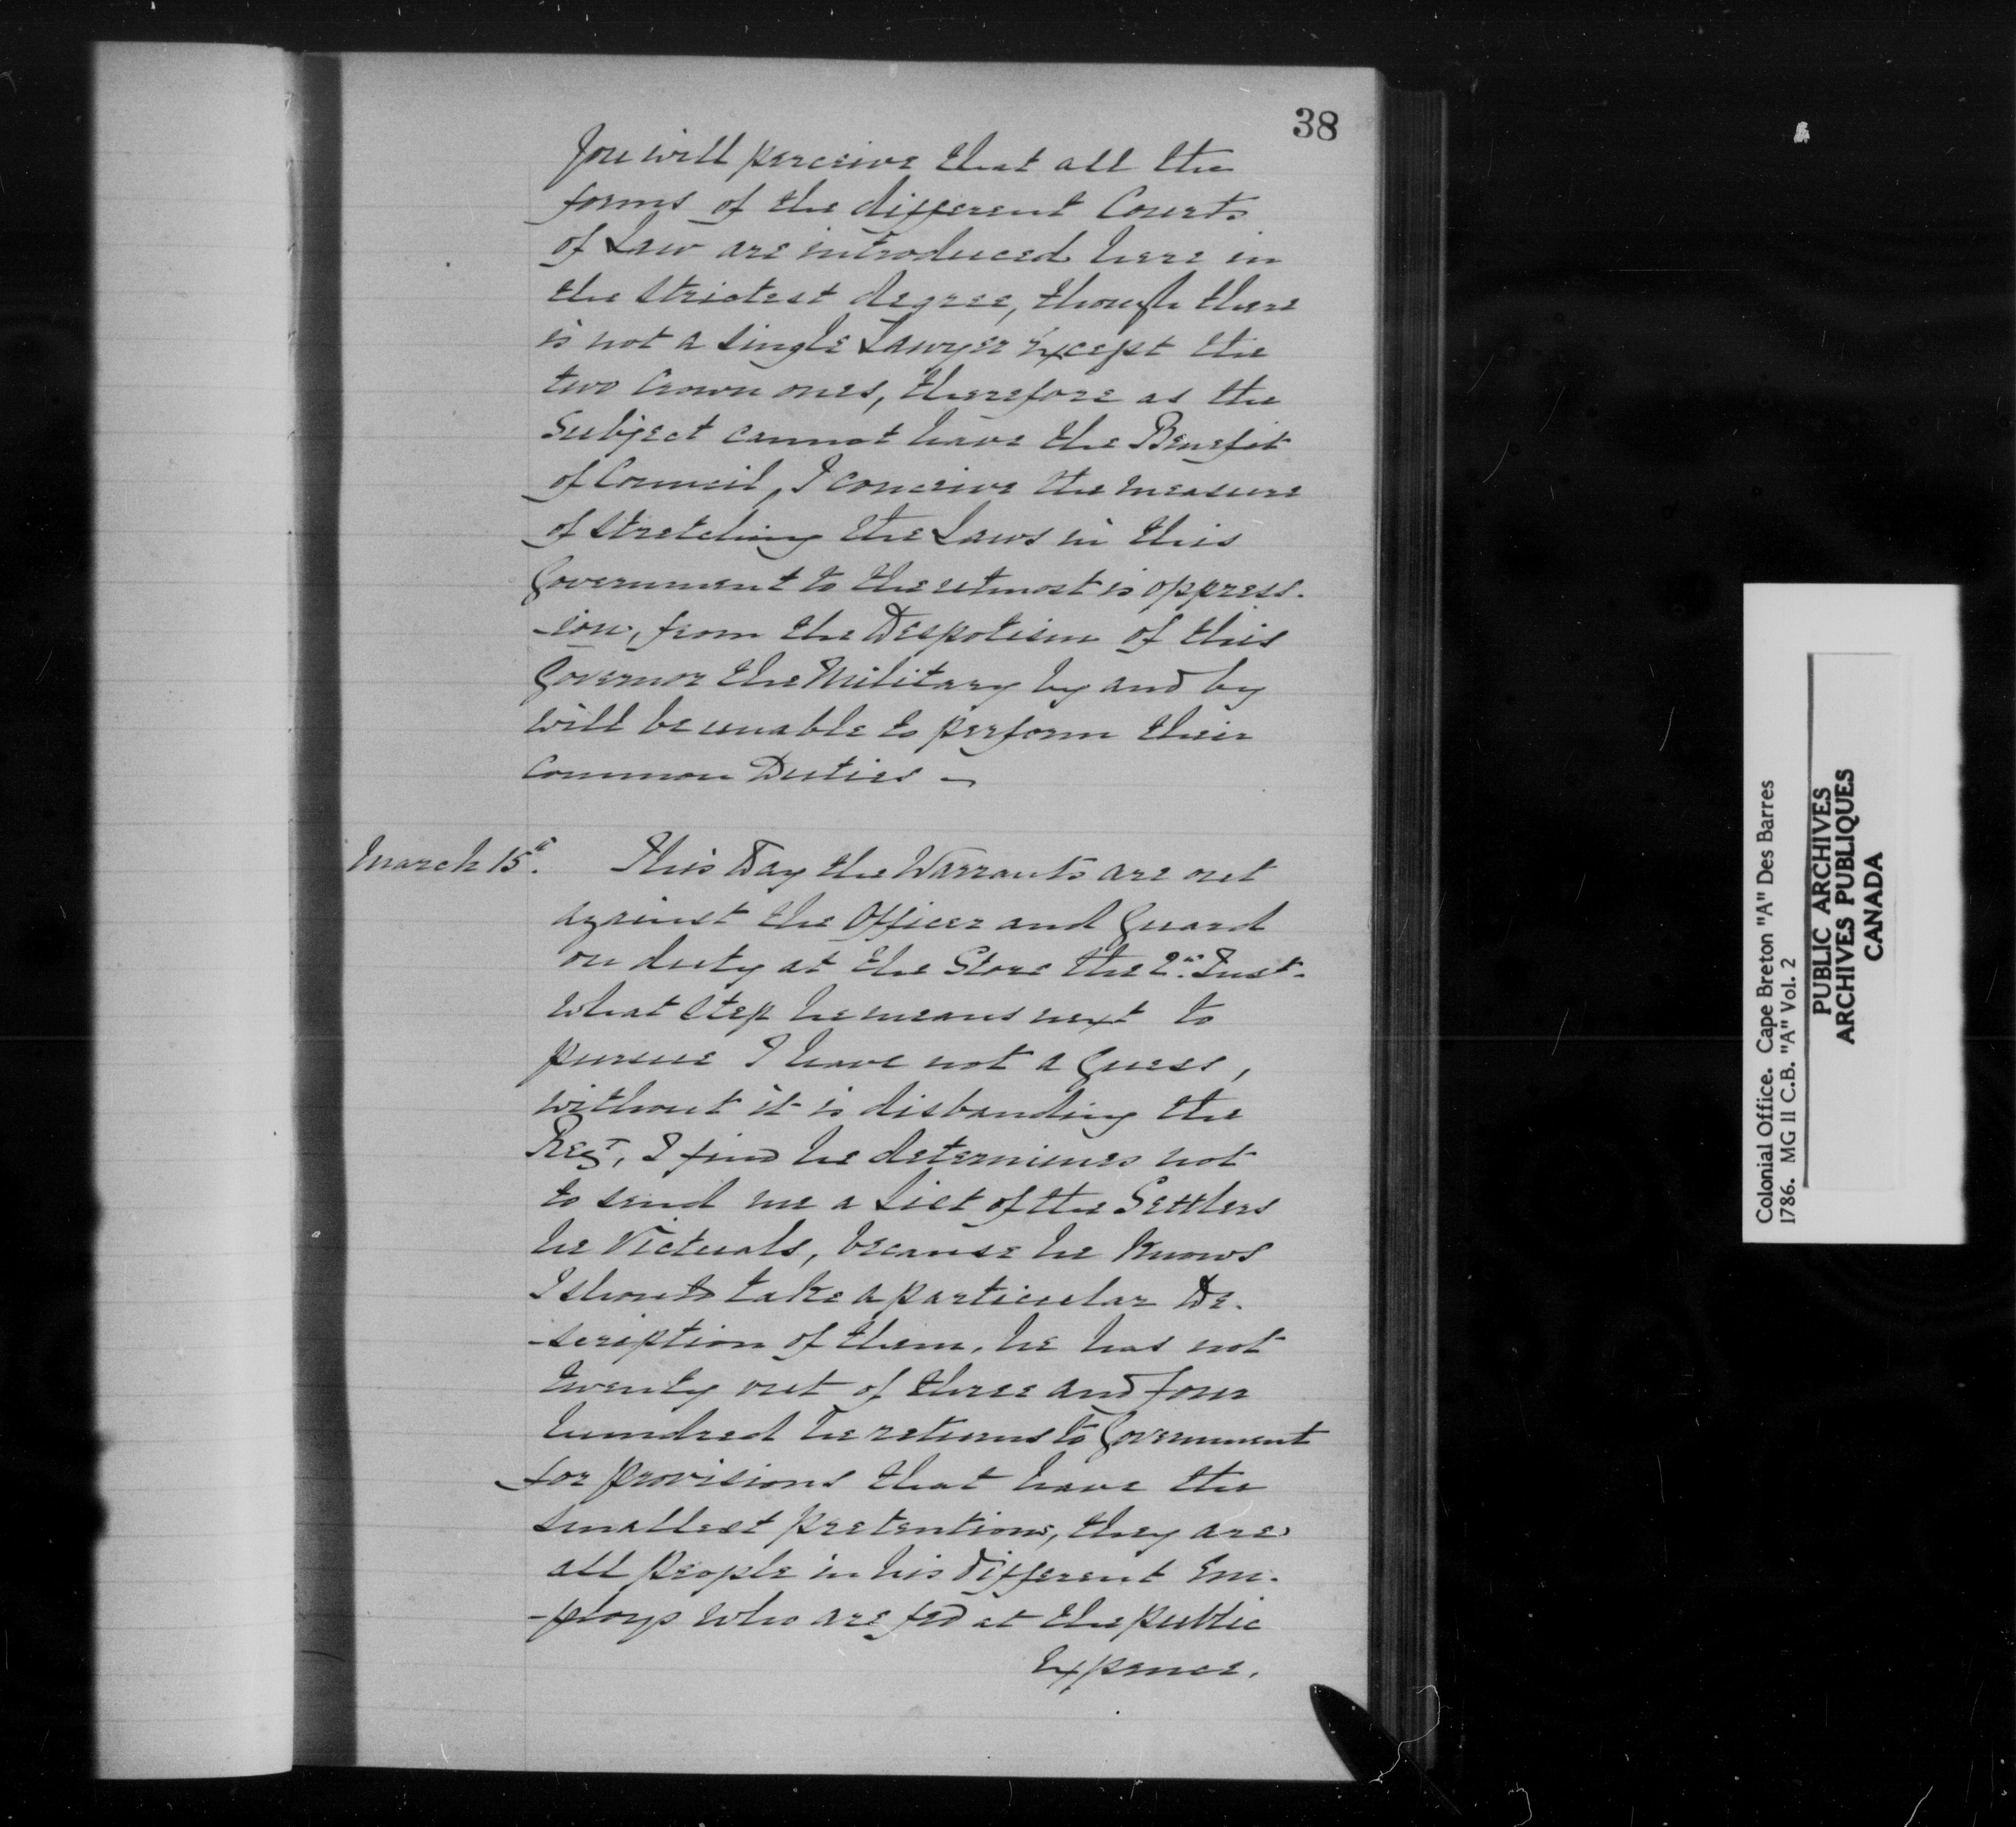 38
You will perceive that all the
forms of the different Courts
of Law are introduced here in
the strictest degree, though there
is not a single Lawyer Except the
two Crown ones, therefore as the
Subject cannot have the Benefit
of Council, I conceive the measure
of stretching the Laws in this
Government to the utmost is oppress-
-ion, from the Despotism of this
Governor the Military by and by
will be unable to perform their
Common Duties —
March 15th. This Day the Warrants are out
against the Officer and Guard
on duty at the Store the 2nd Inst.
What Step he means next to
pursue I have not a Guess,
without it is disbanding the
Regt, I find he determines not
to send me a List of the Settlers
he Victuals, because he knows
I should take a particular De-
-scription of them, he has not
twenty out of three and four
hundred he returns to Government
for provisions that have the
smallest pretentions, they are
all people in his different Em-
-ploys who are fed at the public
Expence.
Colonial Office. Cape Breton "A" Des Barres
1786. MG II C.B. "A" Vol. 2
PUBLIC ARCHIVES
ARCHIVES PUBLIQUES
CANADA